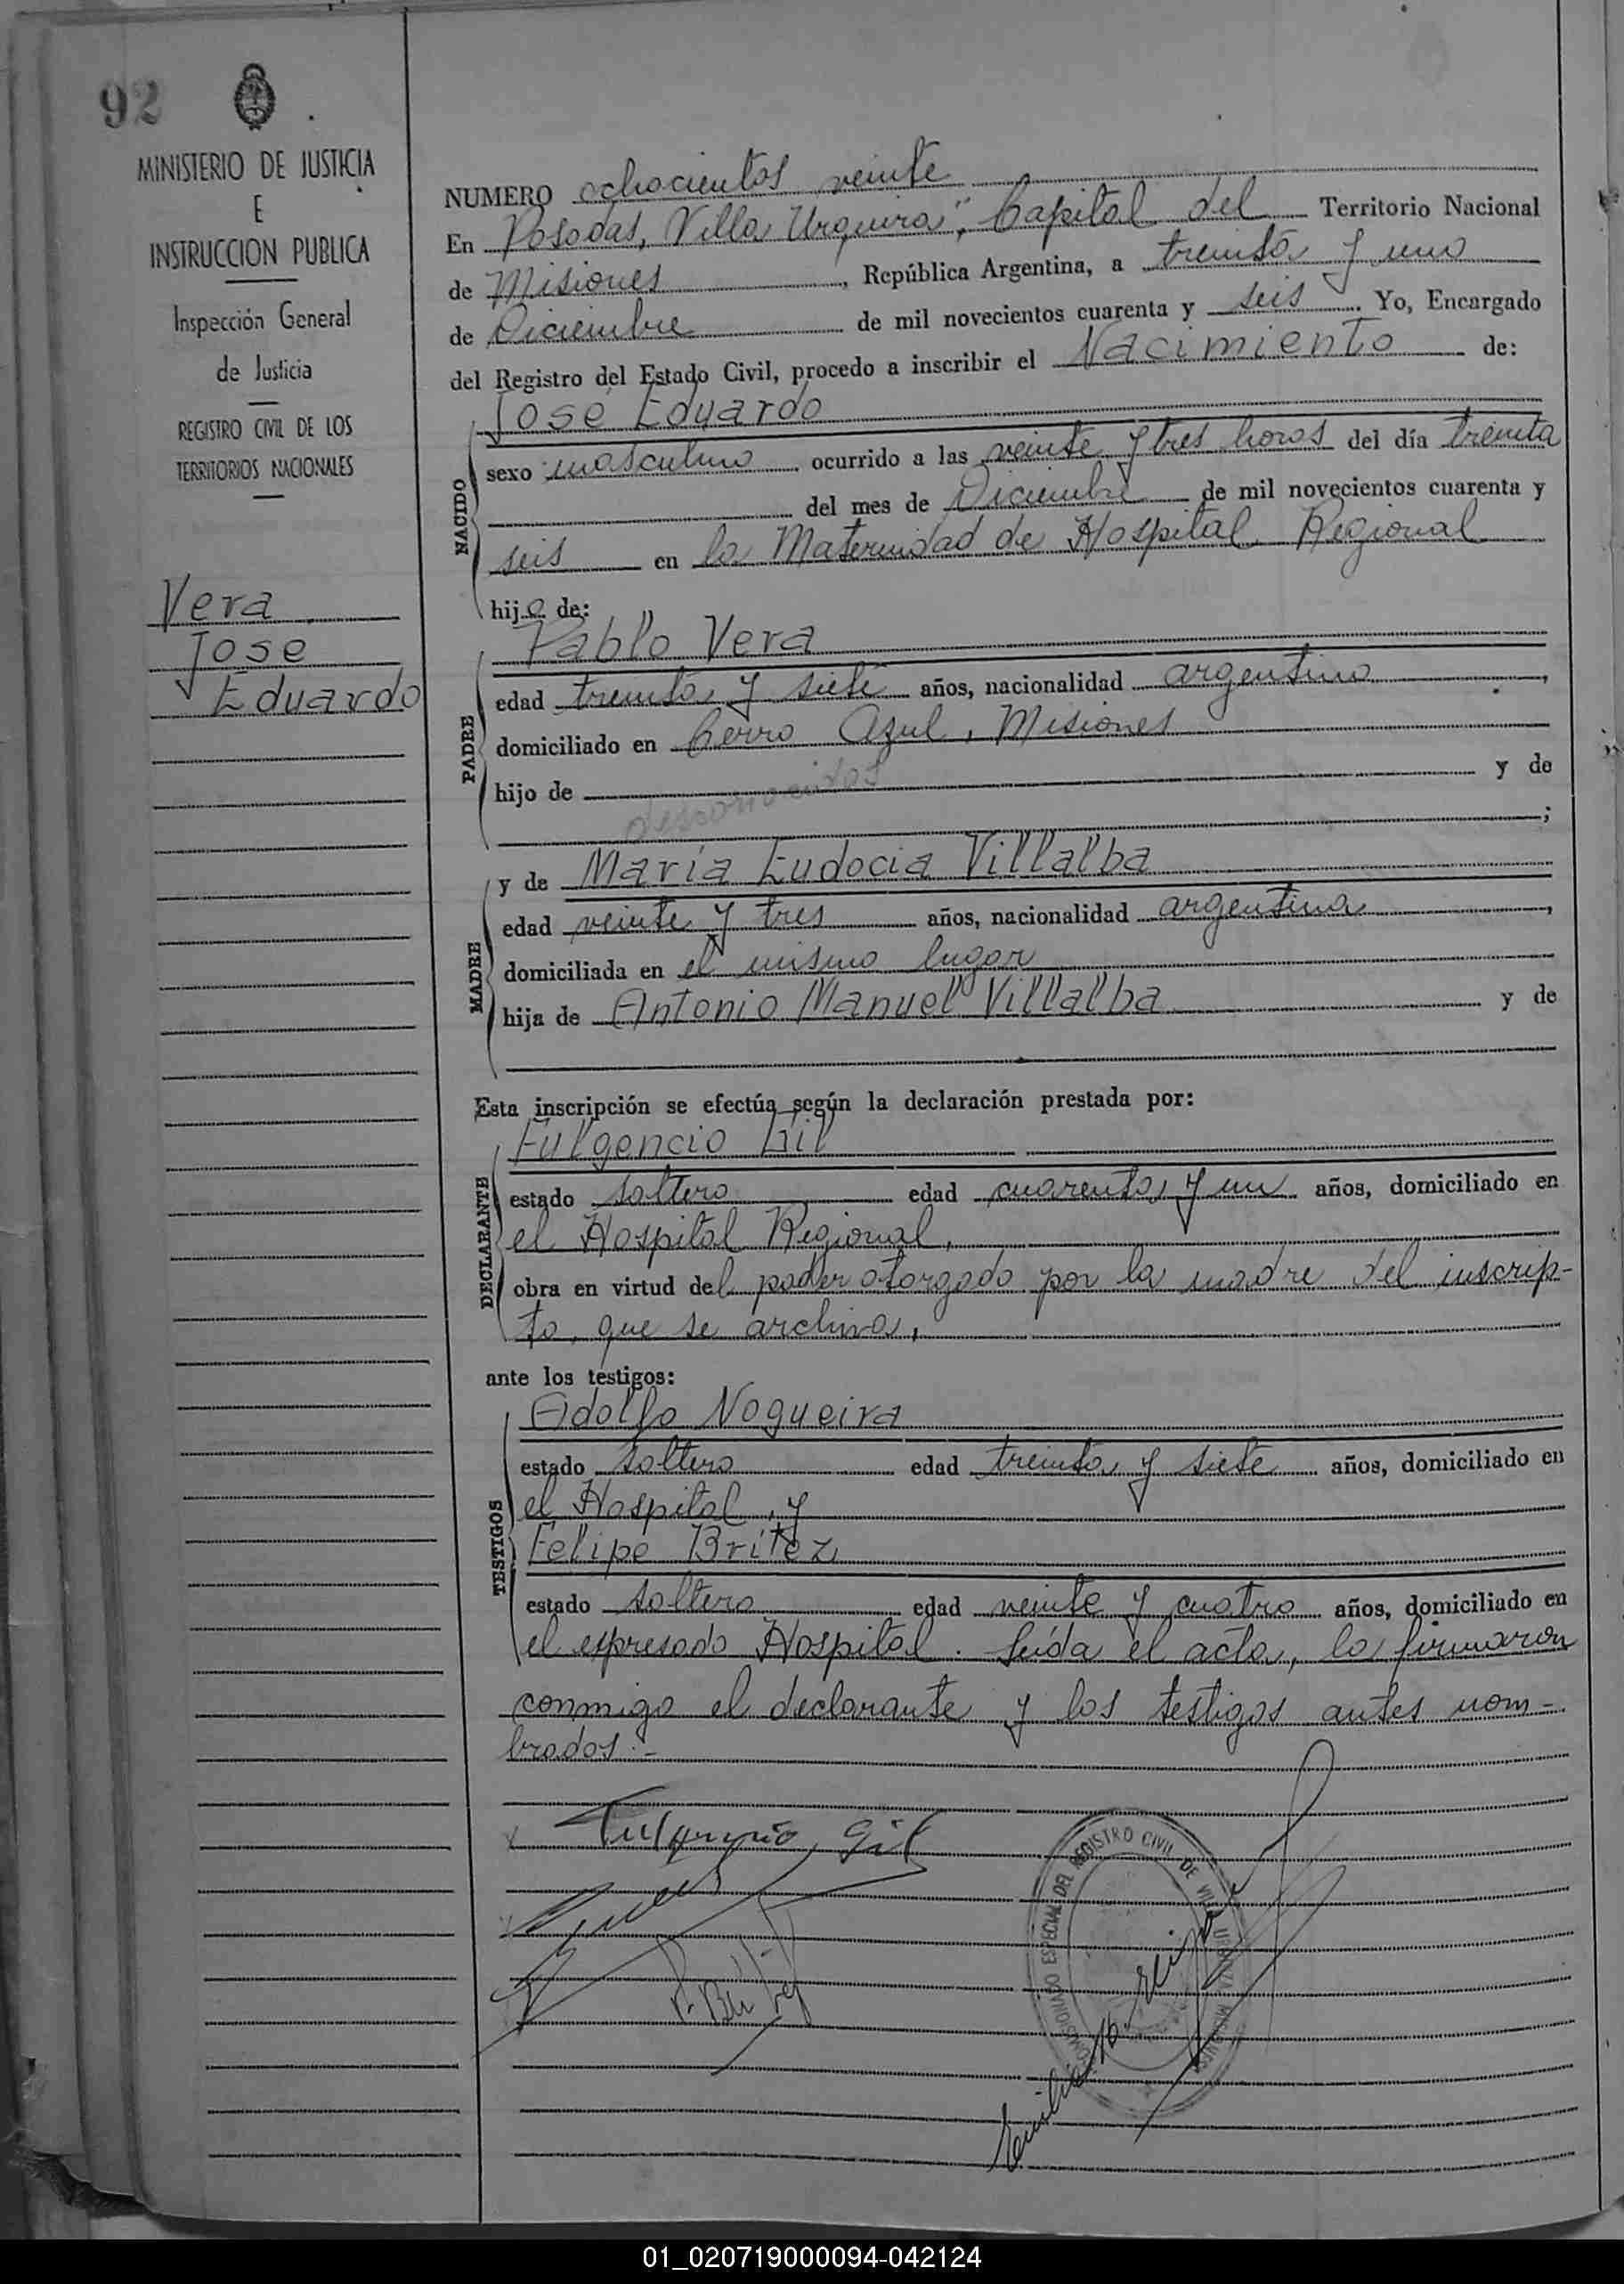 92
MINISTERIO DE JUSTICIA
E
INSTRUCCION PUBLICA
Inspección General
de Justicia
REGISTRO CIVIL DE LOS
TERRITORIOS NACIONALES
Vera
Jose
Eduardo
NUMERO ochocientos veinte
En Posadas, Villa Urquiza", Capital del Territorio Nacional
de Misiones, República Argentina, a treinta y uno
de Diciembre de mil novecientos cuarenta y seis. Yo, Encargado
del Registro del Estado Civil, procedo a inscribir el Nacimiento de:
José Eduardo
NACIDO
sexo masculino ocurrido a las veinte y tres horas del día treinta
del mes de Diciembre de mil novecientos cuarenta y
seis en la Maternidad de Hospital Regional
hijo de:
Pablo Vera
PADRE
edad treinta y siete años, nacionalidad argentino,
domiciliado en Cerro Azul, Misiones
hijo de desconocidos y de
;
y de María Eudocia Villalba
MADRE
edad veinte y tres años, nacionalidad argentina,
domiciliada en el mismo lugar
hija de Antonio Manuel Villalba y de
Esta inscripción se efectúa según la declaración prestada por:
Fulgencio Gil
DECLARANTE
estado soltero edad cuarenta y un años, domiciliado en
el Hospital Regional,
obra en virtud del poder otorgado por la madre del inscrip-
to, que se archiva,
ante los testigos:
Adolfo Nogueira
TESTIGOS
estado soltero edad treinta y siete años, domiciliado en
el Hospital, y
Felipe Britez
estado soltero edad veinte y cuatro años, domiciliado en
el expresado Hospital. Leída el acta, la firmaron
conmigo el declarante y los testigos antes nom-
brados.-
Fulgencio Gil
F. Britez
COMISIONADO ESPECIAL DEL REGISTRO CIVIL DE VILLA URQUIZA MISIONES
01_020719000094-042124